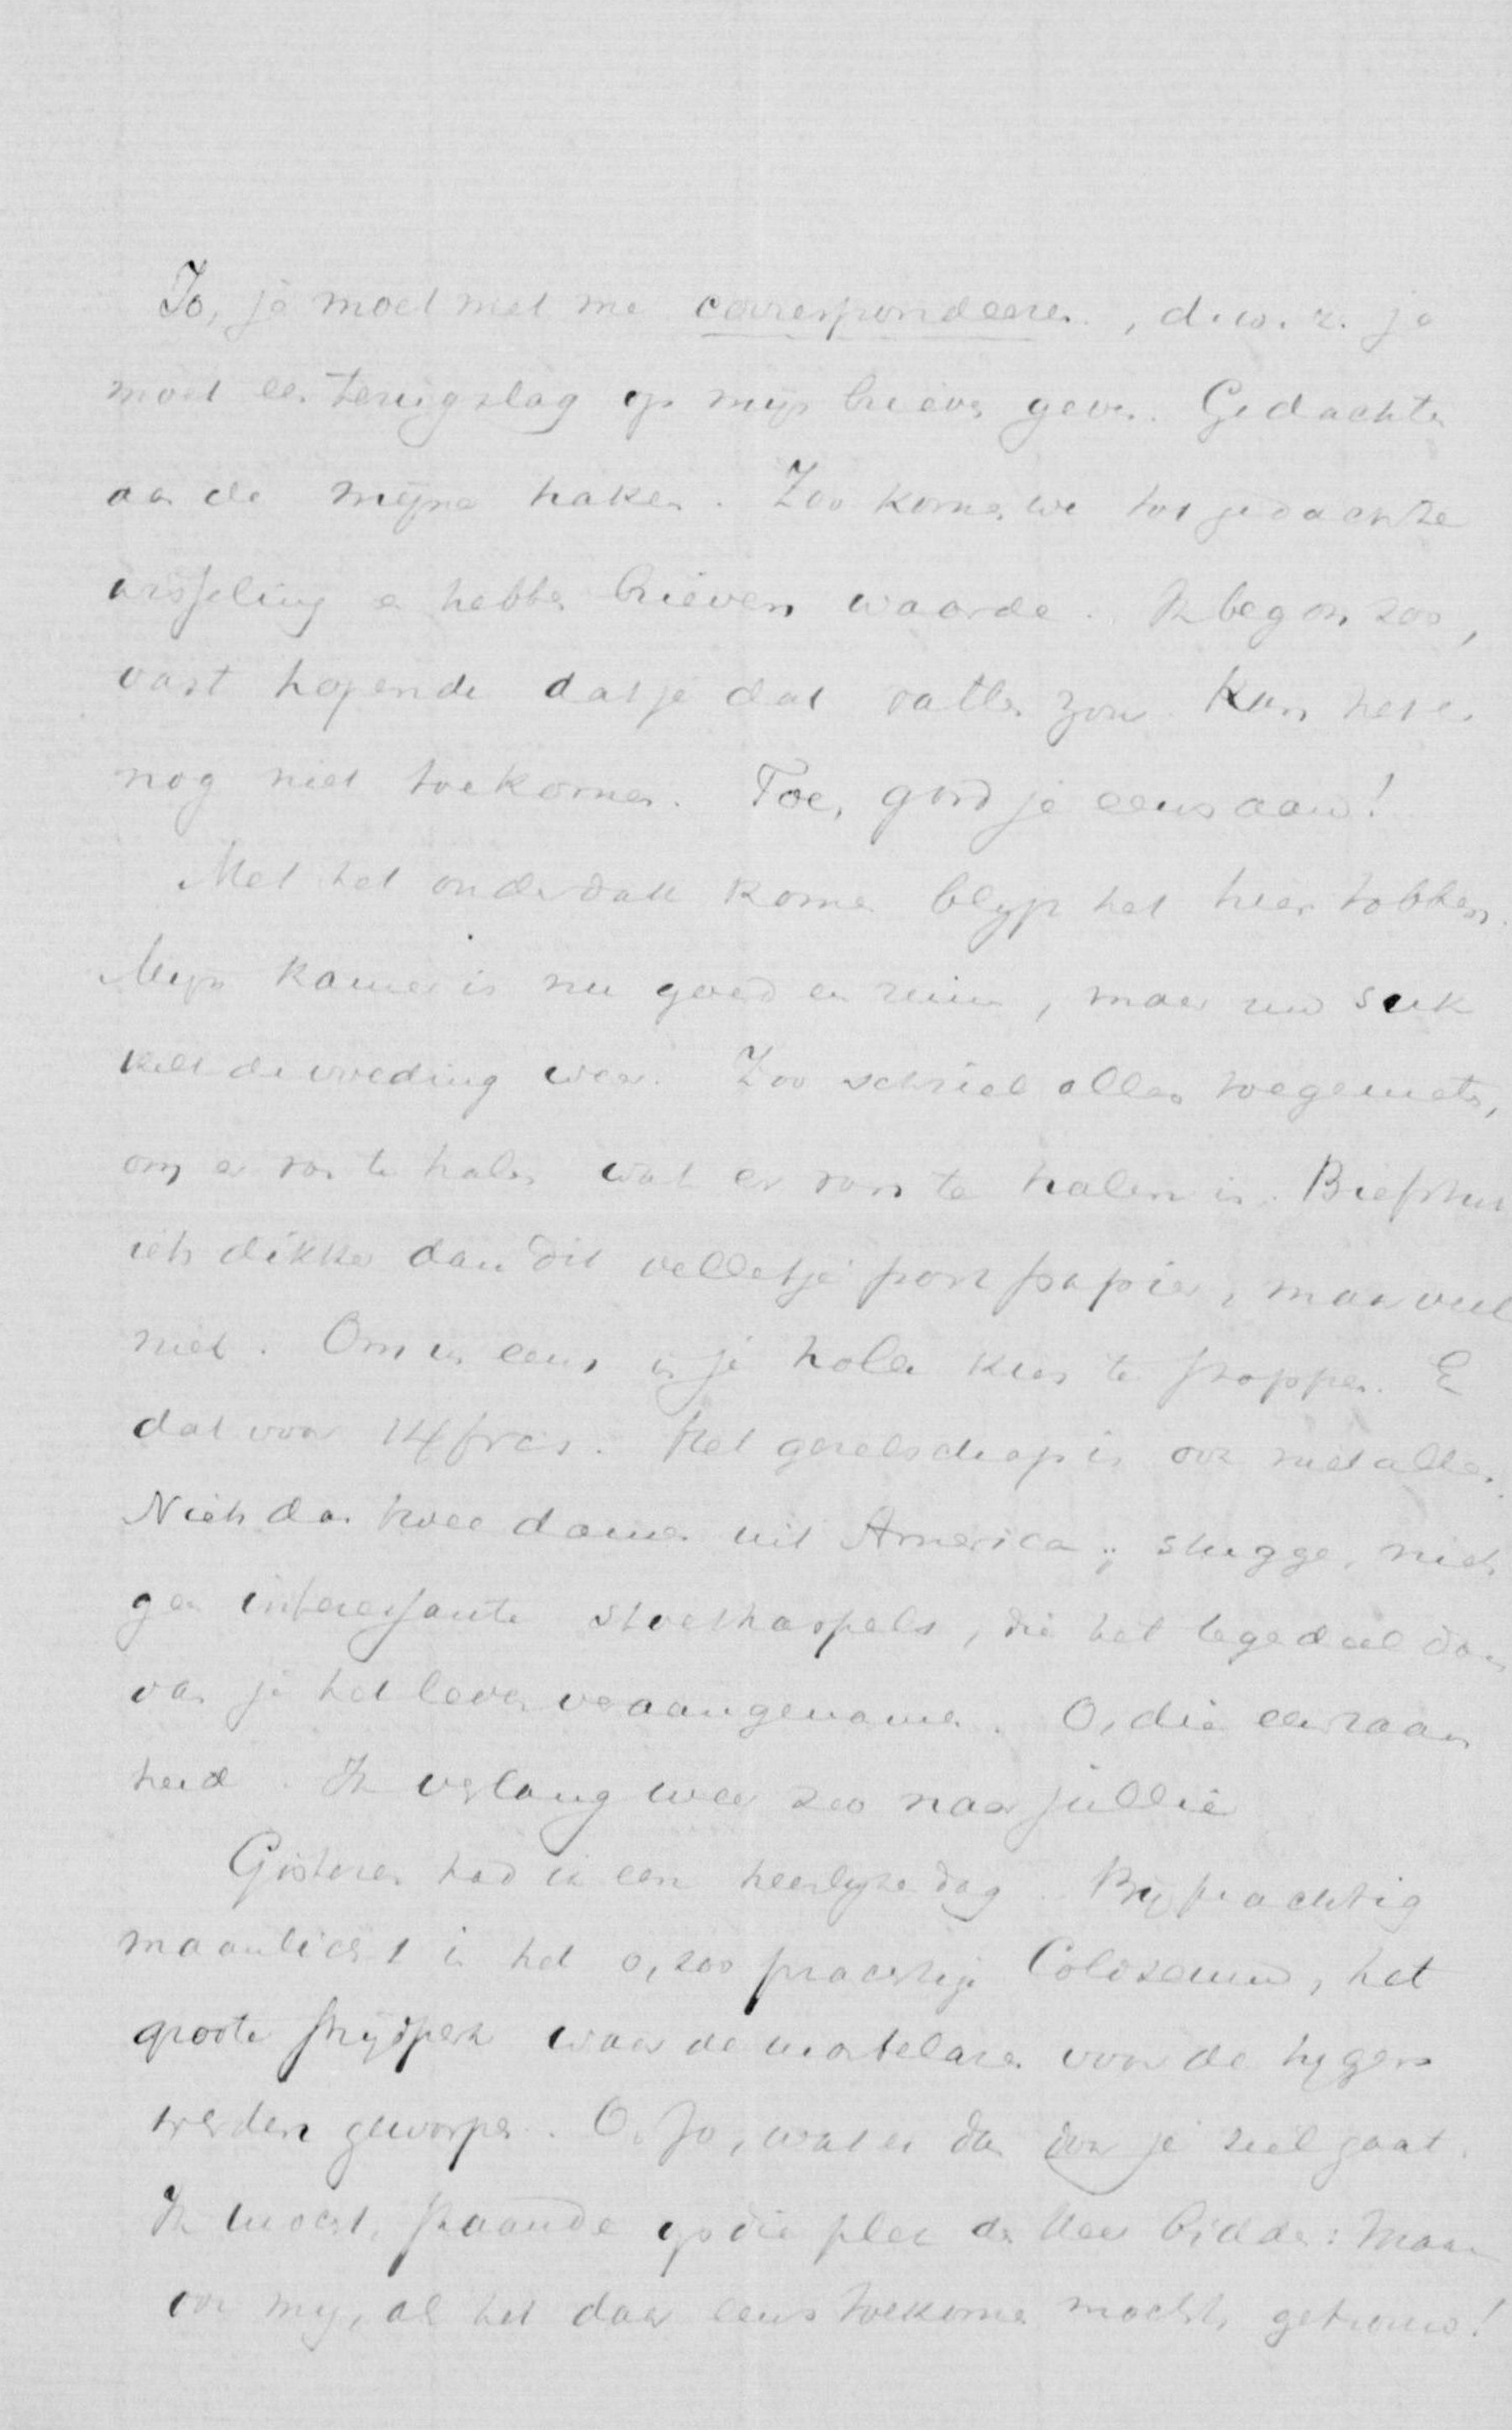 Jo, je moet met me correspondeeren, d.w.z. je
moet een terugslag op mijn brieven geven. Gedachten
aan de mijne haken. Zoo komen we tot gedachte
wisseling en hebben brieven waarde. Ik begon zoo,
vast hopende dat je dat vatten zou. Kan het er
nog niet toe komen. Toe, gord je eens aan!
Met het onder dak komen blijft het hier tobben.
Mijn kamer is nu goed en ruim, maar nu suk
kelt de voeding weer. Zoo schriel alles toegemeten,
om er van te halen wat er van te halen is. Biefstuk
iets dikker dan dit velletje postpapier, maar veel
niet. Om er eens in je holle kies te stoppen. En
dat voor 14 frcs. Het gezelschap is ook niet alles.
Niets dan twee dames uit America; stugge, niets
gen interessante stoethaspels, die het tegendeel doen
van je het leven veraangenamen. O, die eenzaam
heid. Ik verlang weer zoo naar jullie
Gisteren had ik een heerlijke dag. Bij prachtig
maanlicht in het o, zoo prachtige Coloseum, het
groote strijdperk waar de martelaren voor de tijgers
werden geworpen. O, Jo, wat er dan door je ziel gaat.
Ik moest, staande op die plek den Heer bidden: Maak
ook mij, als het daar eens toekomen mocht, getrouw!